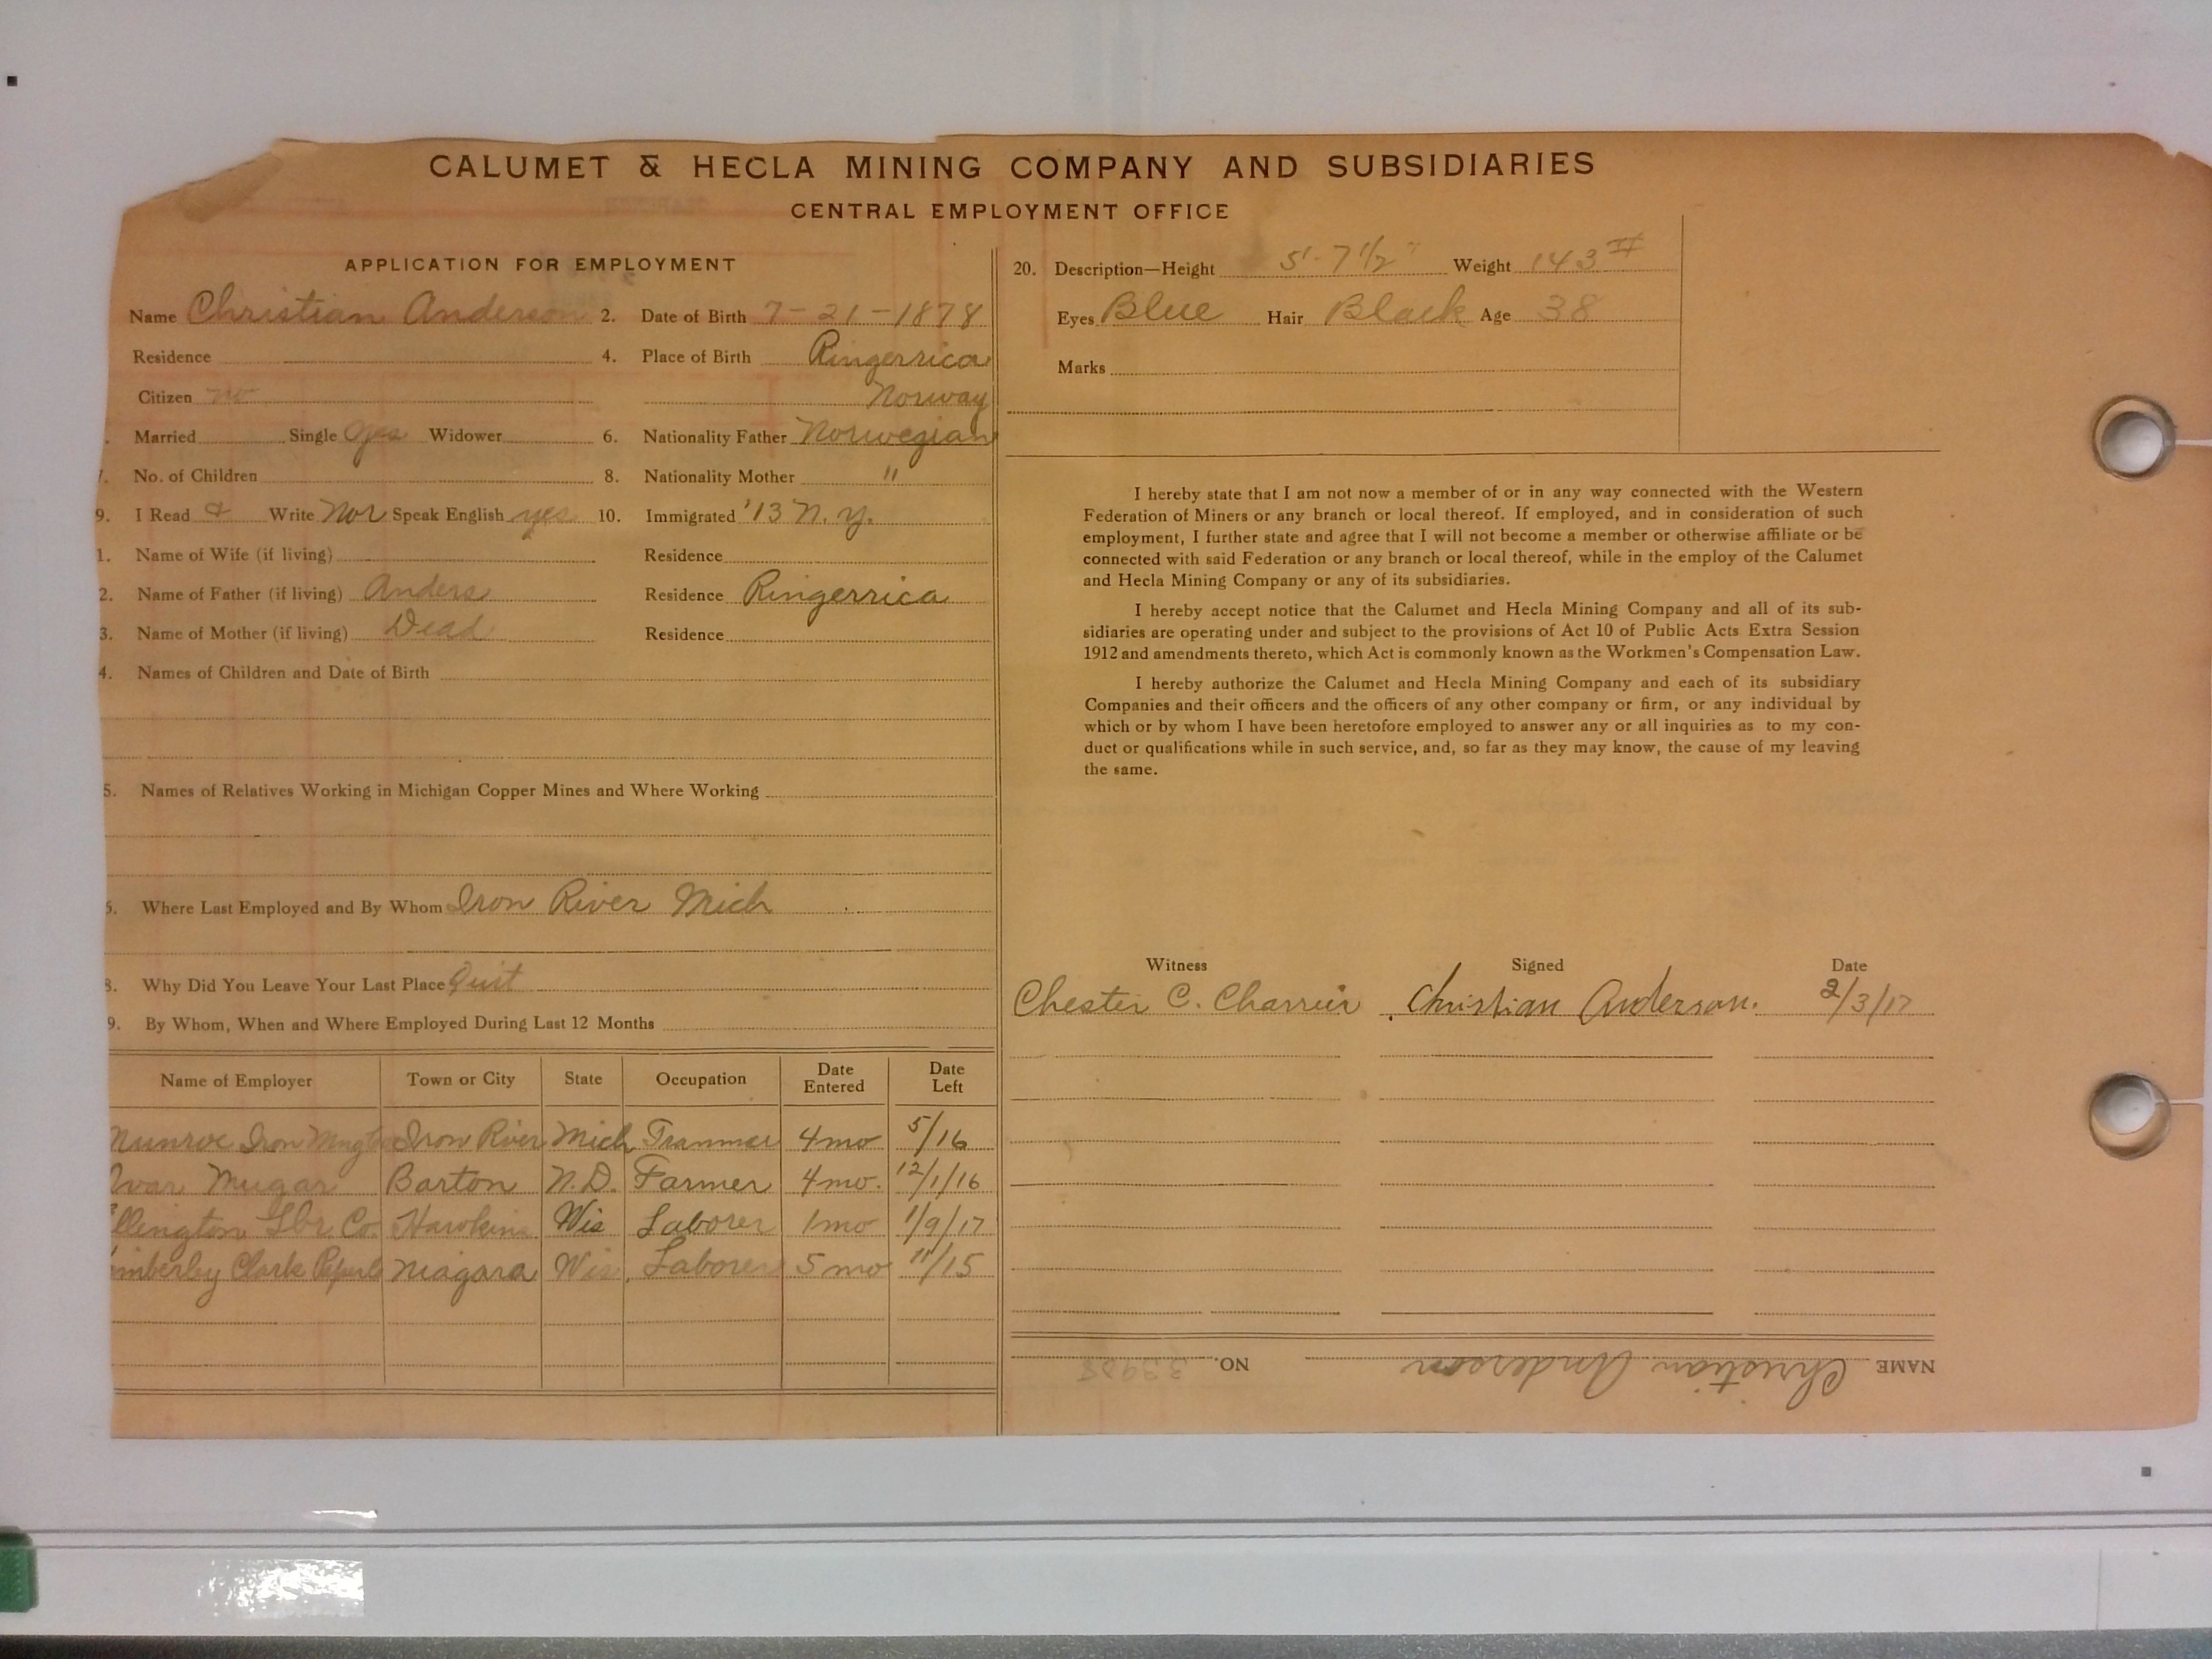 CALUMET & HECLA MINING COMPANY AND SUBSIDIARIES
CENTRAL EMPLOYMENT OFFICE
APPLICATION FOR EMPLOYMENT
Name Christian Anderson 2. Date of Birth 7-21-1878
Residence 4. Place of Birth Ringerrica
Citizen no Norway
Married Single Yes Widower 6. Nationality Father Norwegian
No. of Children 8. Nationality Mother "
9. I Read & Write Nor Speak English yes 10. Immigrated '13 N.Y.
1. Name of Wife (if living) Residence
2. Name of Father (if living) Anders Residence Ringerrica
3. Name of Mother (if living) Dead Residence
4. Names of Children and Date of Birth
5. Names of Relatives Working in Michigan Copper Mines and Where Working
Where Last Employed and By Whom Iron River Mich
8. Why Did You Leave Your Last Place Quit
9. By Whom, When and Where Employed During Last 12 Months
Name of Employer Town or City State Occupation Date Entered Date Left
Munroe Iron Iron River Mich Trammer 4mo 5/16
Barton N.D. Farmer 4mo. 12/1/16
llington Lbr. Co. Hawkins Wis Laborer 1mo 1/9/17
imberley Clark Niagara Wis. Laborer 5mo 11/15
20. Description—Height 5'-7 1/2" Weight 143 #
Eyes Blue Hair Black Age 38
Marks
I hereby state that I am not now a member of or in any way connected with the Western
Federation of Miners or any branch or local thereof. If employed, and in consideration of such
employment, I further state and agree that I will not become a member or otherwise affiliate or be
connected with said Federation or any branch or local thereof, while in the employ of the Calumet
and Hecla Mining Company or any of its subsidiaries.
I hereby accept notice that the Calumet and Hecla Mining Company and all of its sub-
sidiaries are operating under and subject to the provisions of Act 10 of Public Acts Extra Session
1912 and amendments thereto, which Act is commonly known as the Workmen's Compensation Law.
I hereby authorize the Calumet and Hecla Mining Company and each of its subsidiary
Companies and their officers and the officers of any other company or firm, or any individual by
which or by whom I have been heretofore employed to answer any or all inquiries as to my con-
duct or qualifications while in such service, and, so far as they may know, the cause of my leaving
the same.
Witness Signed Date
Chester C. Christian Anderson. 2/3/17
NAME Christian Anderson NO. 33908